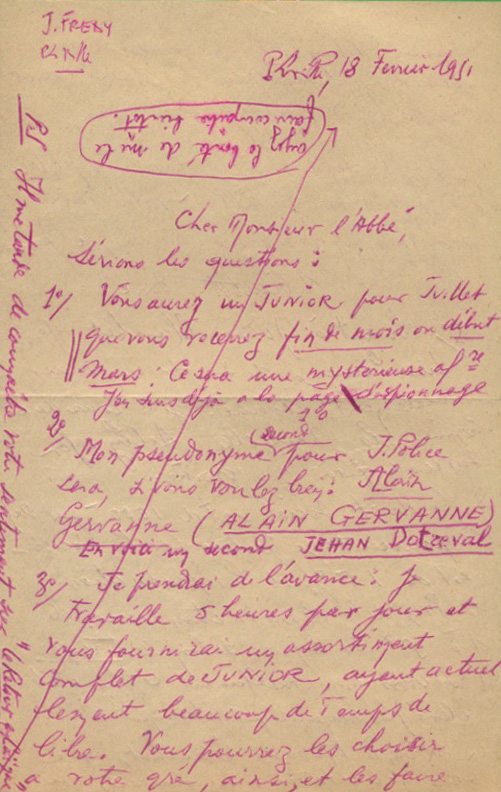 J. FREBY
18 Fevrier 1951
ayez la bonté de me le
faire connaître bientôt.
Cher Monsieur l'Abbé,
Sérions les questions :
1°/ Vous aurez un JUNIOR pour Juillet
que vous recevrez fin de mois ou début
Mars. Ce sera une mystérieuse aff re
J'en suis déjà à la page d'espionnage
10
2°/ Mon pseudonyme (second) pour J. Police
sera, si vous voulez bien : Alain
Gervanne (ALAIN GERVANNE)
En voici un second JEHAN Dotreval
3°/ Je prendrai de l'avance : je
travaille 5 heures par jour et
vous fournirai un assortiment
complet de JUNIOR, ayant actuel
lement beaucoup de temps de
libre. Vous pourrez les choisir
à votre gré, ainsi, et les faire
PS Il me tarde de connaître votre sentiment sur